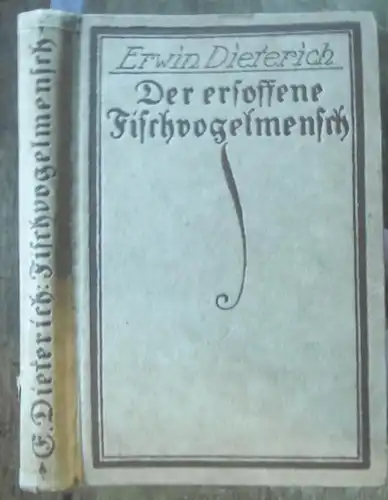 Erwin Dieterich
Der ersoffene
Fischvogelmensch
E. Dieterich: Fischvogelmensch